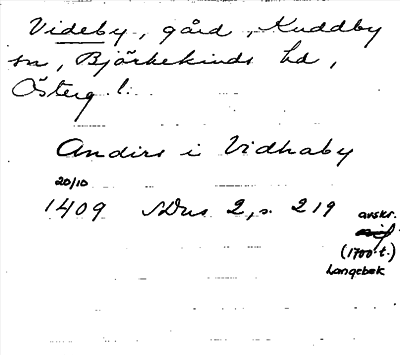 Videby, gård, Kuddby
sn, Björkekinds hd,
Österg. l.
Andirs i Vidhaby
20/10
1409 SDns 2, s. 219
avskr.
(1700-t.)
Langebek